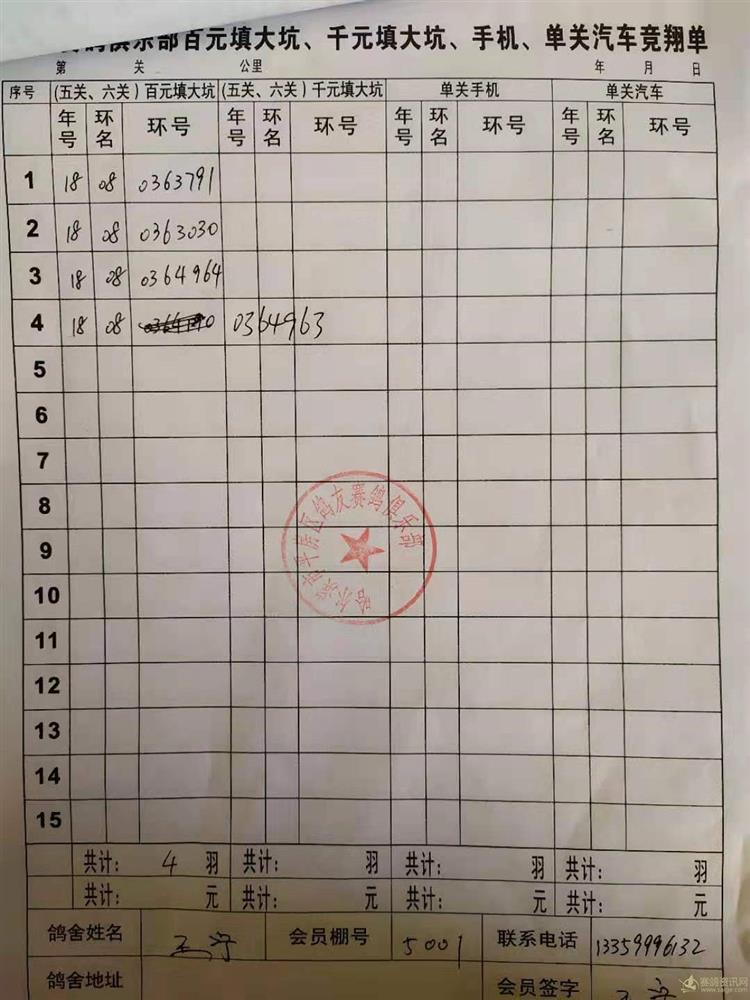 俱乐部百元填大坑、千元填大坑、手机、单关汽车竞翔单
第 关 公里 年 月 日
序号 (五关、六关)百元填大坑 (五关、六关)千元填大坑 单关手机 单关汽车
年号 环名 环号 年号 环名 环号 年号 环名 环号 年号 环名 环号
1 18 08 0363791
2 18 08 0363030
3 18 08 0364964
4 18 08 0364963
5
6
7
8
9
10
11
12
13
14
15
哈尔滨市平房区鸽友赛鸽俱乐部
共计: 4 羽 共计: 羽 共计: 羽 共计: 羽
共计: 元 共计: 元 共计: 元 共计: 元
鸽舍姓名 会员棚号 5001 联系电话 13359996132
鸽舍地址 会员签字
赛鸽资讯网